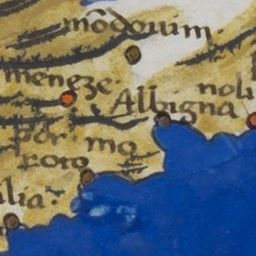 mōdouim.
meneze
noli
Albigna
por. mo
roro
lia.